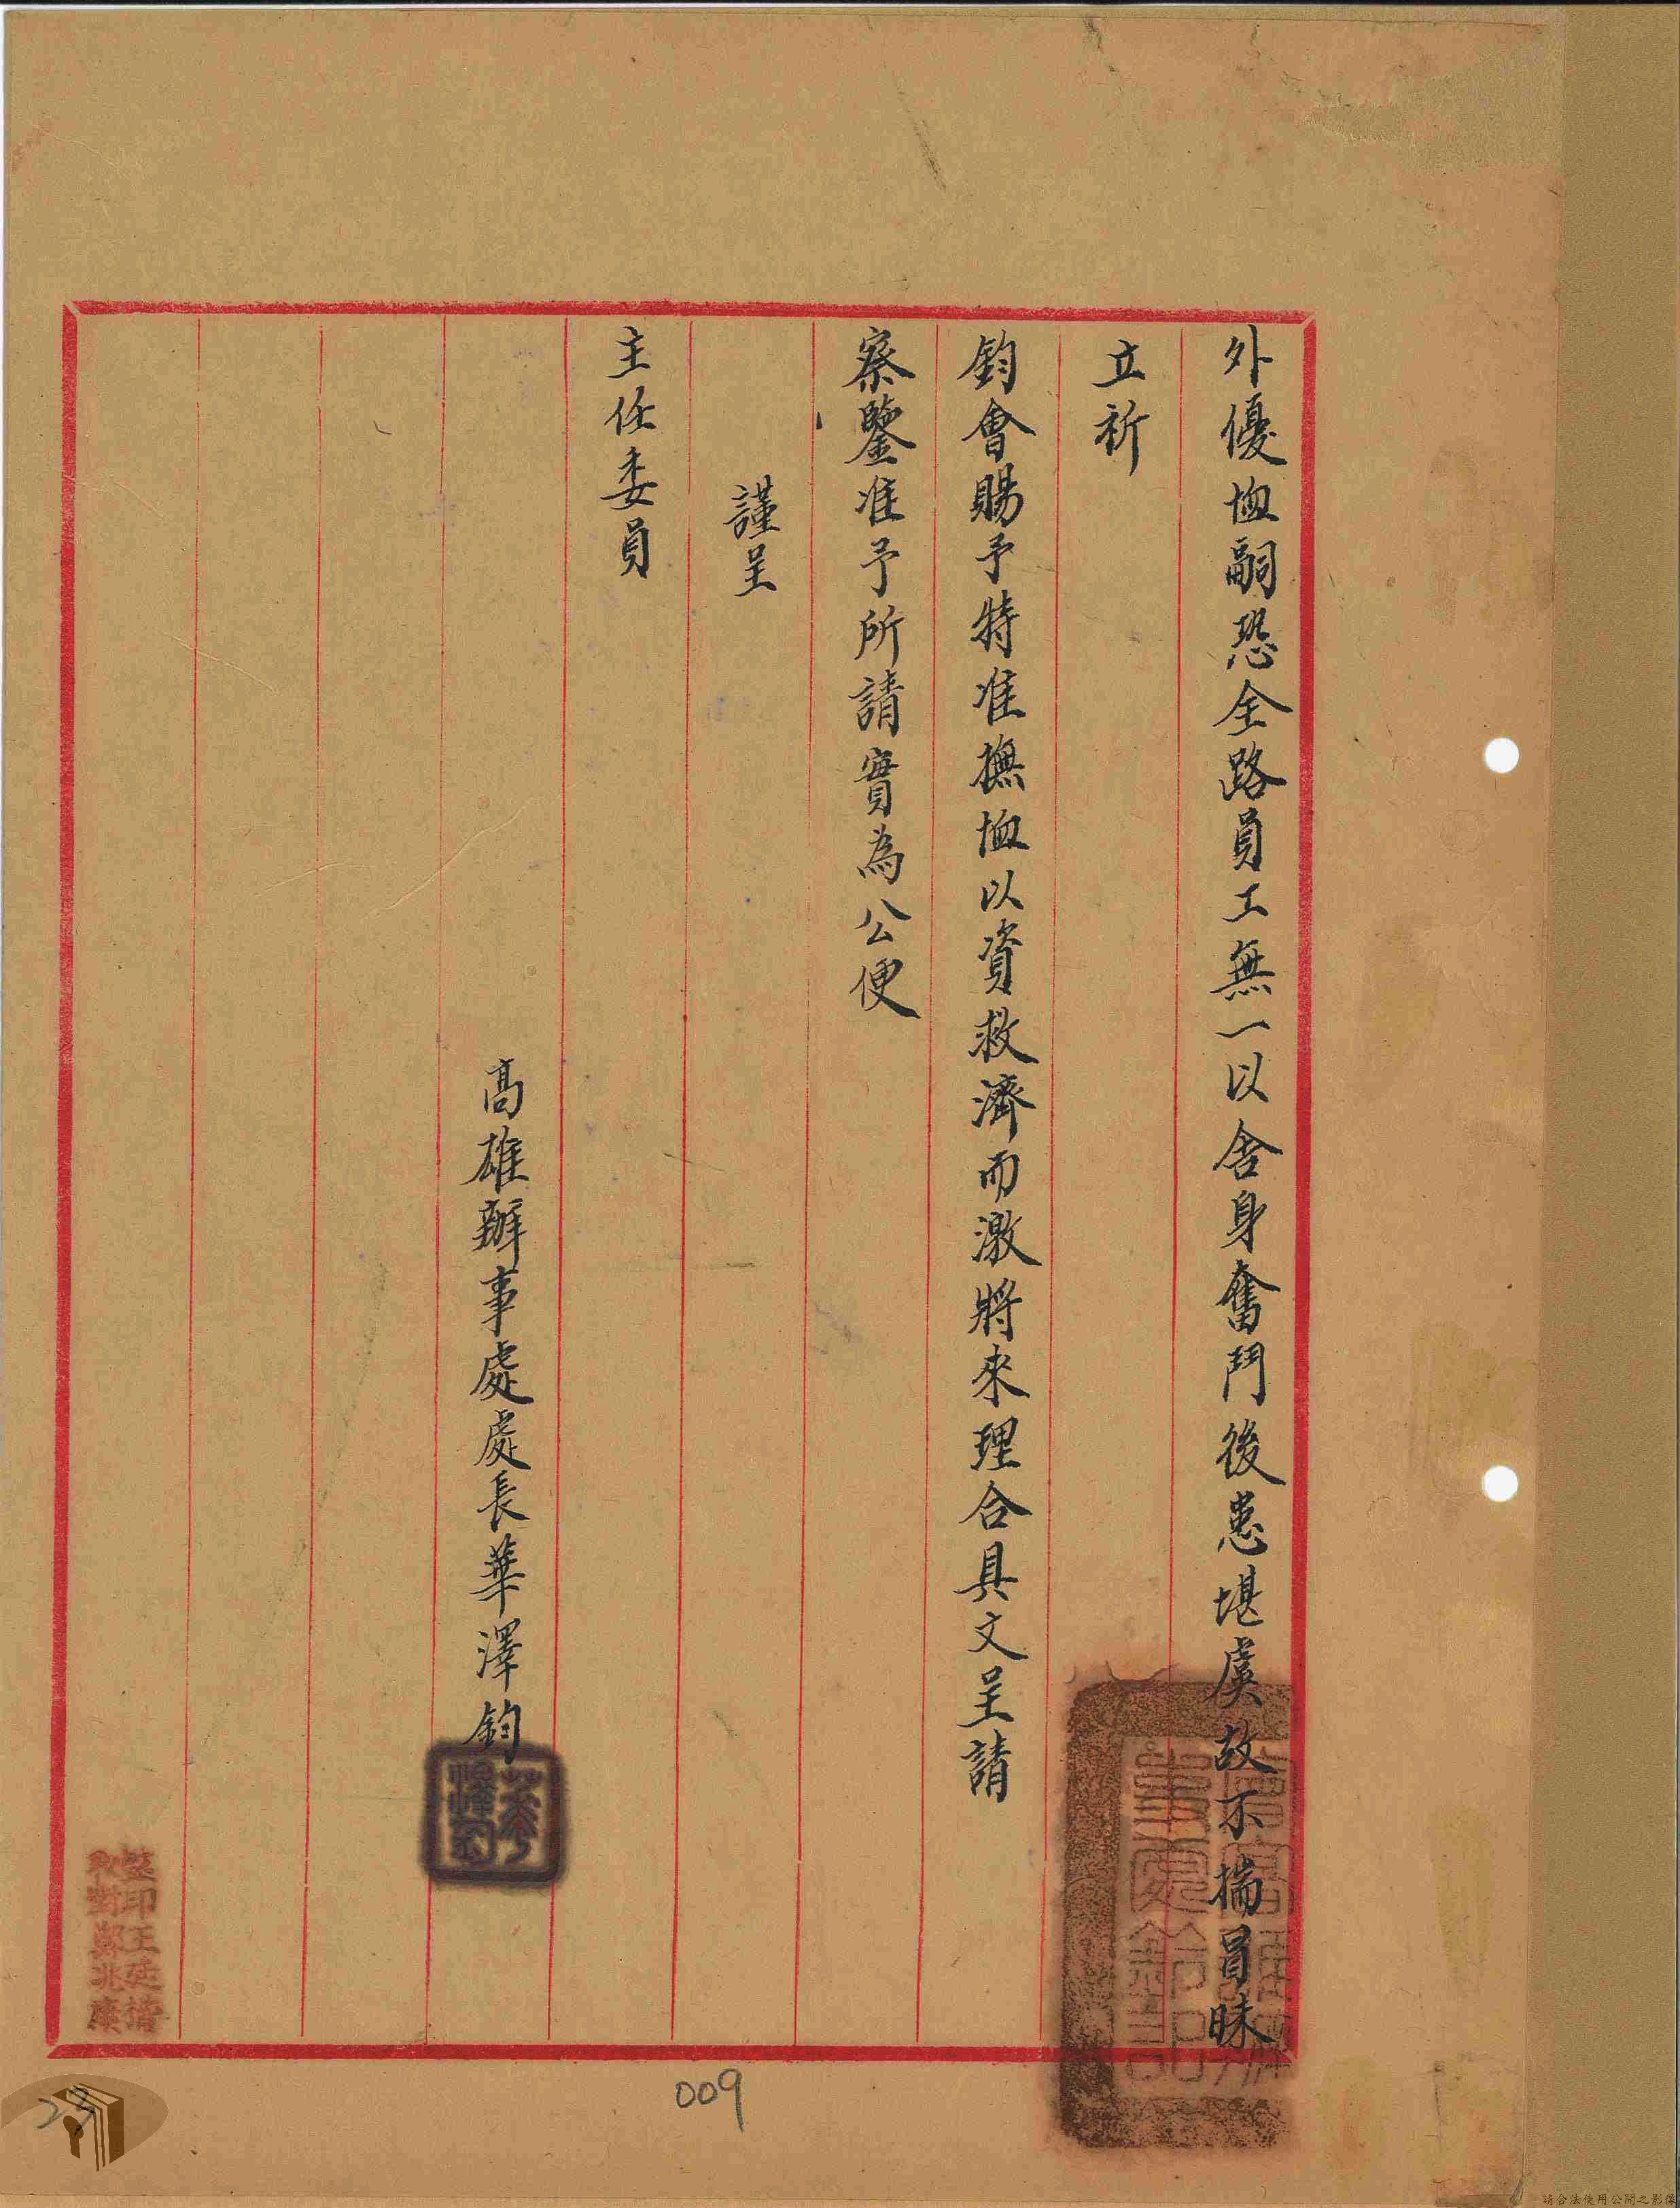 外優恤嗣恐全路員工無一以舍身奮鬥後患堪虞故不揣冒昧
立祈
鈞會賜予特准撫恤以資救濟而激將來理合具文呈請
察鑒准予所請實為公便
謹呈
主任委員
高雄辦事處處長華澤鈞
華澤鈞
監印王廷
校對鄭兆康
009
23
請合法使用公開之影像